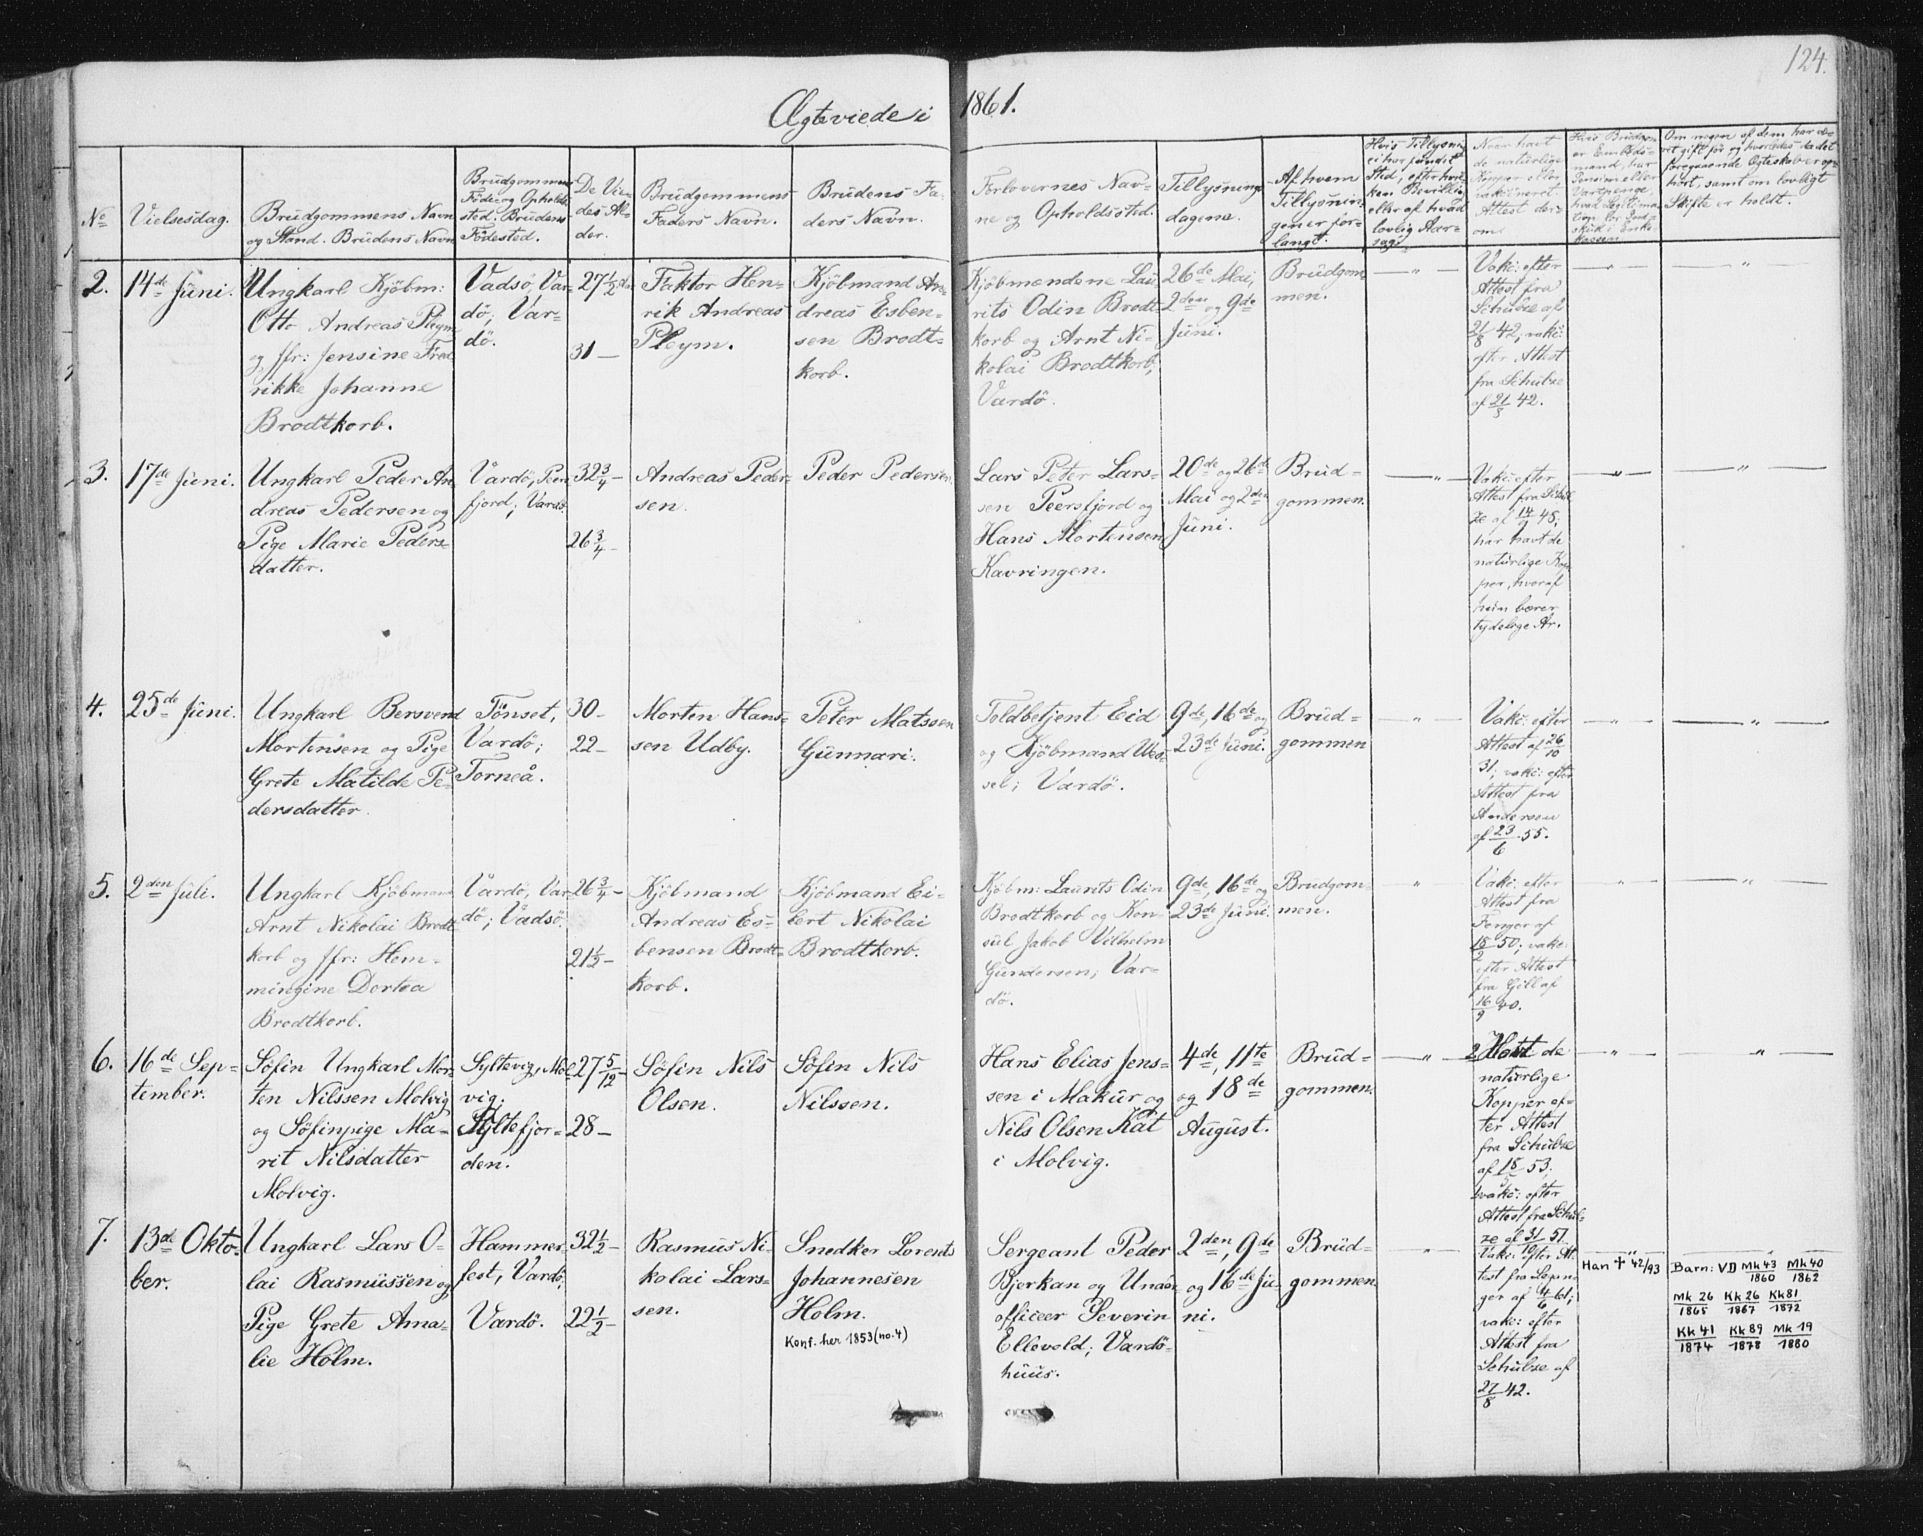 124.
Ægteviede i 1861.
No
Vielsesdag.
Brudgommens Navn
og Stand. Brudens Navn
Brudgommens
Føde- og Opholds-
sted. Brudens
Födested.
De Vie-
des Al-
der.
Brudgommens
Faders Navn.
Brudens Fa-
ders Navn.
Forlovernes Nav-
ne og Opholdssted.
Tillysnings
dagene.
Af hvem
Tillysnin-
gen er for-
langt.
Hvis Tillysning
ei har fundet
Sted, efter hvil-
ken Bevilling
eller af hvad
lovlig Aar-
sag.
Naar havt
de naturlige
Kopper eller
vakcineret
Attest der-
om
Hvis Brudgom
er Embeds-
mand, har
Pension eller
Vartpenge
Om nogen af dem har væ-
ret gift før og hvorledes da det
foregaaende Ægteskab er op-
hørt, samt om lovligt
Skifte er holdt.
2.
14de Juni.
Ungkarl Kjöbm:
Otto Andreas Pleym
og Jfr: Jensine Fred
rikke Johanne
Brodtkorb.
Vadsö, Var-
dö; Var-
dö.
27 1/2
31 —
Faktor Hen-
rik Andreas
Pleym.
Kjöbmand An-
dreas Esben-
sen Brodt-
korb.
Kjöbmændene Lau
rits Odin Brodt-
korb og Arnt Ni-
kolai Brodtkorb;
Vardö.
26de Mai,
2den og 9de
Juni.
Brudgom
men.
— " —
Vakc: efter
Attest fra
Schulze af
21/8 42; vakc:
efter Attest
fra Schulze
af 21/8 42.
— " —
— " —
3.
17de Juni.
Ungkarl Peder An
dreas Pedersen og
Pige Marie Peders-
datter.
Vardö, Peers
fjord; Vardö.
32 3/4 —
26 3/4 —
Andreas Peder-
sen.
Peder Pedersen
Lars Peter Lars-
sen Peersfjord og
Hans Mortensen
Kavringen.
20de og 26de
Mai og 2den
Juni.
Brud-
gommen.
— " —
Vakc: efter
Attest fra Schul
ze af 14/9 48.
har havt de
naturlige Kop
per, hvoraf
hun bærer
tydelige Ar.
— " —
— " —
4.
25de Juni.
Ungkarl Bersvend
Mortensen og Pige
Grete Matilde Pe-
dersdatter.
Tönset,
Vardö;
Torneå.
30 —
22 —
Morten Hans-
sen Udby.
Peter Matssen
Gunnari.
Toldbetjent Eid
og Kjöbmand Wes-
sel; Vardö.
9de, 16de og
23de Juni.
Brud-
gommen
— " —
Vakc: efter
Attest af 26/10
31; vakc: efter
Attest fra
Anderson
af 23/6 55.
— " —
— " —
5.
2den Juli.
Ungkarl Kjöbmand
Arnt Nikolai Brodt
korb og Jfr: Hem-
mingine Dortea
Brodtkorb.
Vardö, Var
dö; Vadsö.
26 3/4 —
21 1/2 —
Kjöbmand
Andreas Es-
bensen Brodt-
korb.
Kjöbmand Ei-
lert Nikolai
Brodtkorb.
Kjöbm: Laurits Odin
Brodtkorb og Kon-
sul Jakob Vilhelm
Gundersen; Var-
dö.
9de, 16de og
23de Juni.
Brudgom-
men.
"
Vakc: efter
Attest fra
af
18/2 50; vakc:
efter Attest
fra Gjill af
16/9 40.
— " —
— " —
6.
16de Sep-
tember.
Söfin Ungkarl Mor-
ten Nilssen Molvig
og Söfinpige Ma-
rit Nilsdatter
Molvig.
Syltevig, Mol-
vig;
Syltefjor-
den.
27 5/12 —
28 —
Söfin Nils
Olsen.
Söfin Nils
Nilssen.
Hans Elias Jens-
sen i Makur og
Nils Olsen Kat
i Molvig.
4de, 11te
og 18de
August.
Brud-
gommen.
— " —
2 Havt de
naturlige
Kopper ef-
ter Attest
fra Schulze
af 18/5 53.
1 vakc: efter
Attest fra Schul-
ze af 31/10 57.
— " —
"
7.
13de Okto-
ber.
Ungkarl Lars O-
lai Rasmussen og
Pige Grete Ama-
lie Holm.
Hammer-
fest, Vardö;
Vardö.
32 1/2 —
22 1/2 —
Rasmus Ni-
kolai Lars-
sen.
Snedker Lorents
Johannesen
Holm.
Konf. her 1853 (no. 4)
Sergeant Peder
Bjerkan og Under
officeer Severin
Ellevold; Vardö-
huus.
2den, 9de
og 16de Ju-
ni.
Brud-
gommen.
"
Vakc: efter At
test fra
af 4/6 61;
vakc: efter
Attest fra
Schulze af
27/8 42.
— " —
Han † 42/93
"
Barn: VD Mk 43/1860 Mk 40/1862
Mk 26/1865 Kk 26/1867 Kk 81/1872
Kk 41/1874 Kk 89/1878 Mk 19/1880